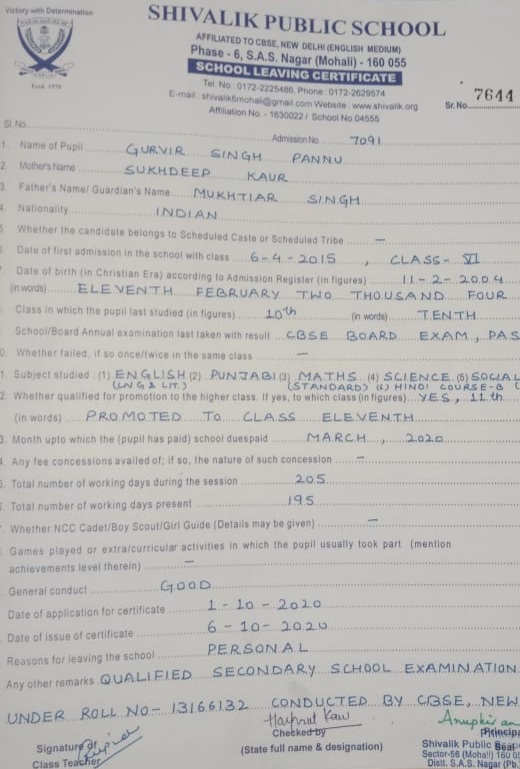 Victory with Determination
Estd. 1976
SHIVALIK PUBLIC SCHOOL
AFFILIATED TO CBSE, NEW DELHI (ENGLISH MEDIUM)
Phase - 6, S.A.S. Nagar (Mohali) - 160 055
SCHOOL LEAVING CERTIFICATE
Tel. No : 0172-2225486, Phone : 0172-2629574
E-mail : shivalik6mohali@gmail.com Website : www.shivalik.org
Affiliation No. - 1630022 / School No.04555
Sr. No. 7644
Sl. No.
Admission No. 7091
1. Name of Pupil GURVIR SINGH PANNU
2. Mother's Name SUKHDEEP KAUR
3. Father's Name/ Guardian's Name MUKHTIAR SINGH
4. Nationality INDIAN
Whether the candidate belongs to Scheduled Caste or Scheduled Tribe —
Date of first admission in the school with class 6-4-2015 , CLASS- VI
Date of birth (in Christian Era) according to Admission Register (in figures) 11-2-2004
(in words) ELEVENTH FEBRUARY TWO THOUSAND FOUR
Class in which the pupil last studied (in figures) 10th (in words) TENTH
School/Board Annual examination last taken with result CBSE BOARD EXAM, PAS
0. Whether failed, if so once/twice in the same class —
1. Subject studied : (1) ENGLISH (2) PUNJABI (3) MATHS (4) SCIENCE (5) SOCIAL
(LNG & LIT.) (STANDARD) (6) HINDI COURSE-B (
2. Whether qualified for promotion to the higher class. If yes, to which class (in figures) YES, 11th
(in words) PROMOTED TO CLASS ELEVENTH
3. Month upto which the (pupil has paid) school duespaid MARCH , 2020
4. Any fee concessions availed of; if so, the nature of such concession —
5. Total number of working days during the session 205
Total number of working days present 195
Whether NCC Cadet/Boy Scout/Girl Guide (Details may be given) —
Games played or extra/curricular activities in which the pupil usually took part (mention
achievements level therein) —
General conduct GOOD
Date of application for certificate 1-10-2020
Date of issue of certificate 6-10-2020
Reasons for leaving the school PERSONAL
Any other remarks QUALIFIED SECONDARY SCHOOL EXAMINATION
UNDER ROLL NO- 13166132 CONDUCTED BY CBSE, NEW
Signature of
Class Teacher
Harpreet Kaur
Checked by
(State full name & designation)
Shivalik Public
Sector-56 (Mohali) 160
Distt. S.A.S. Nagar (Pb.